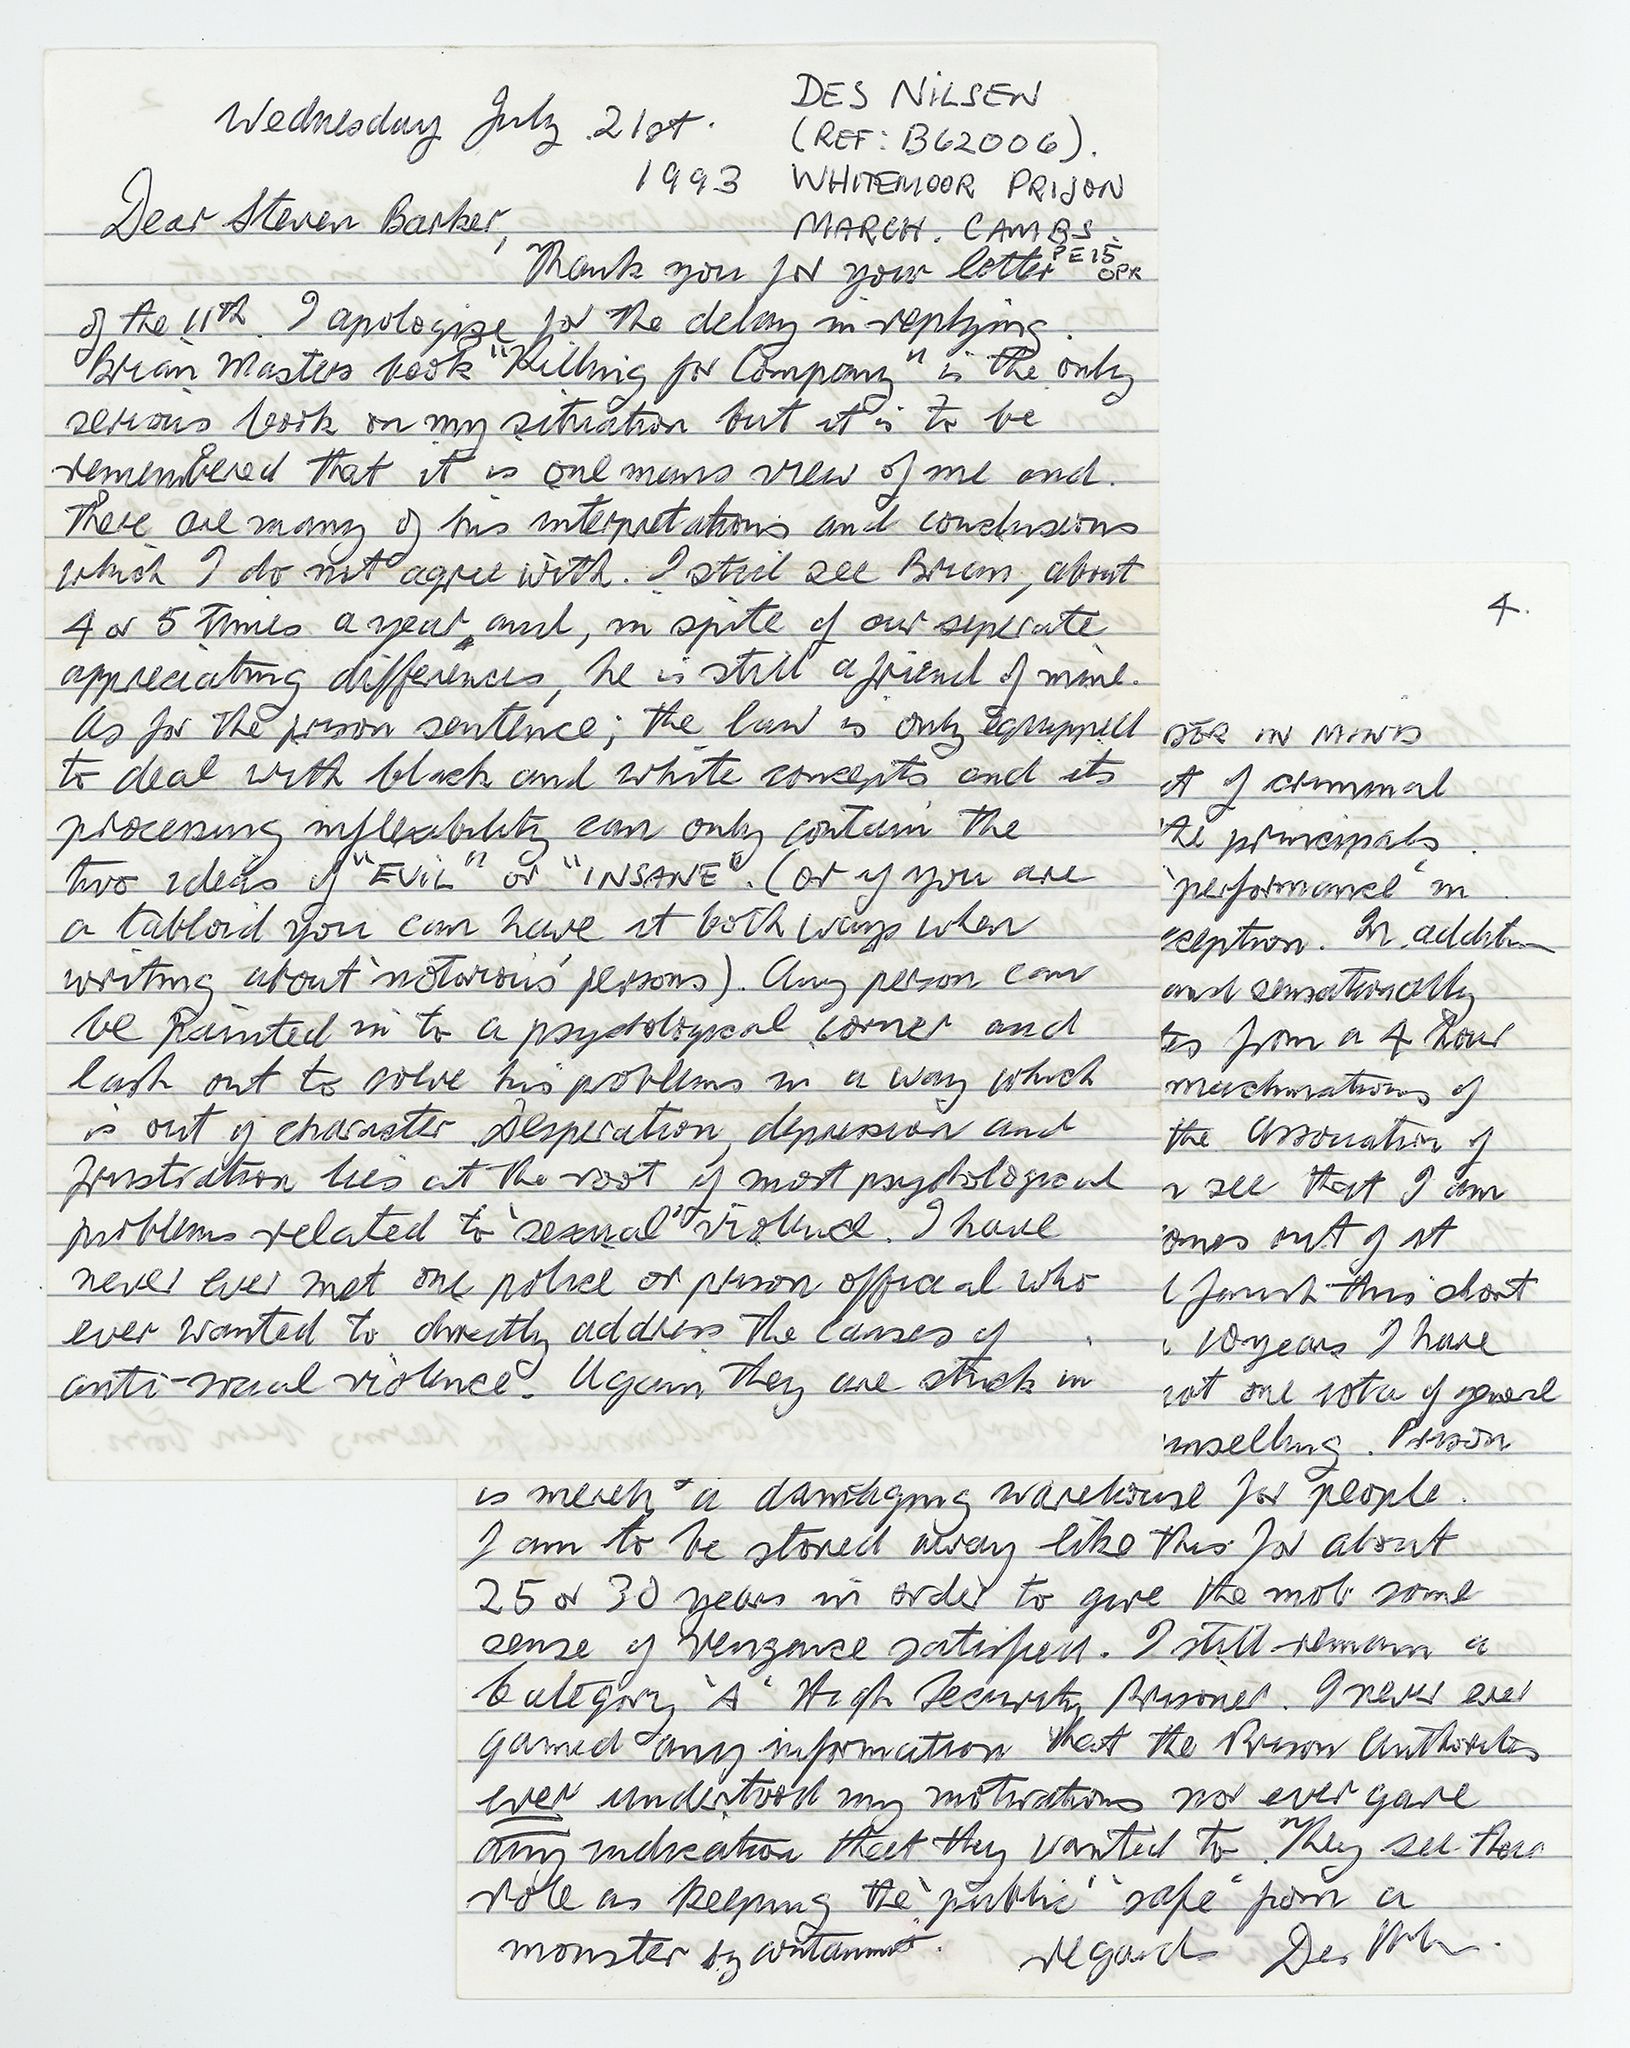 DES NILSEN
Wednesday July 21st.
(REF: B62006).
1993 WHITEMOOR PRISON
Dear Steven Barker,
MARCH. CAMBS.
PE15
OPR
Thank you for your letter
of the 11th. I apologise for the delay in replying.
Brian Masters book "Killing for Company" is the only
serious book on my situation but it is to be
remembered that it is one mans view of me and.
there are many of his interpretations and conclusions
which I do not agree with. I still see Brian, about
4 or 5 times a year, and, in spite of our seperate
appreciating differences, he is still a friend of mine.
As for the prison sentence; the law is only equipped
to deal with black and white concepts and its
processing inflexability can only contain the
two ideas of "EVIL" or "INSANE". (or if you are
a tabloid you can have it both ways when
writing about 'notorious' persons). Any person can
be painted in to a psychological corner and
lash out to solve his problems in a way which
is out of character. Desperation, depression and
frustration lies at the root of most psychological
problems related to 'sexual' violence. I have
never ever met one police or prison official who
ever wanted to directly address the causes of
anti-social violence. Again they are stuck in
4.
IN MINDS
of criminal
the principals
'performance' in
ception. In addition
and sensationally
from a 4 hour
machinations of
the association of
see that I am
out of it
finish this short
10 years I have
not one iota of general
nselling. Prison
is merely a damaging warehouse for people.
I am to be stored away like this for about
25 or 30 years in order to give the mob some
sense of vengance satisfied. I still remain a
Category 'A' High Security Prisoner. I never ever
gained any information that the Prison Authorities
ever understood my motivations nor ever gave
any indication that they wanted to. They see their
role as keeping the 'public' 'safe' from a
monster by containment.
regards Des Nilsen.